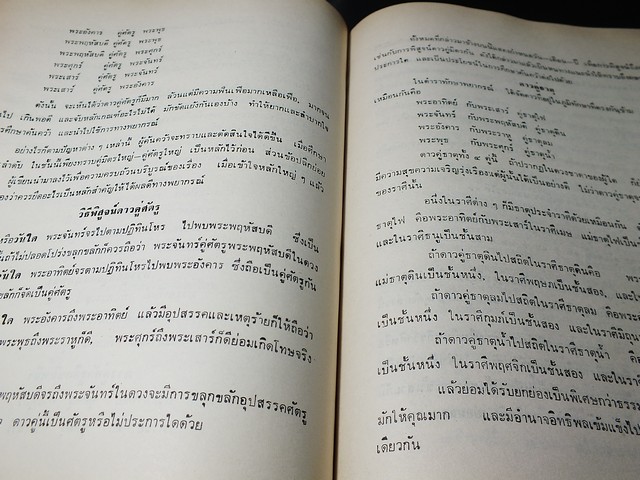 พระอังคาร คู่ศัตรู พระพุธ
พระพฤหัสบดี คู่ศัตรู พระพุธ
พระพฤหัสบดี คู่ศัตรู พระศุกร์
พระศุกร์ คู่ศัตรู พระจันทร์
พระเสาร์ คู่ศัตรู พระจันทร์
พระเสาร์ คู่ศัตรู พระอังคาร
ดังนั้น จะเห็นได้ว่าดาวคู่ศัตรูก็มีมาก ส่วนแต่มีความฟั่นเฟือมากเหลือเฟือ, มากจน
ไป เกินพอดี และจับหลักเกณฑ์อะไรไม่ได้ มักขัดแย้งกันเองบ้าง ทำให้ยากและลำบากใจ
ารศึกษาค้นคว้า และนำไปใช้การทางพยากรณ์
อย่างไรก็ตามปัญหาต่าง ๆ เหล่านี้ ผู้ค้นคว้าจะทราบและตัดสินใจได้ดีขึ้น เมื่อศึกษา
ลำดับ ในชั้นนี้เพียงทราบคู่มิตรใหญ่—คู่ศัตรูใหญ่ เป็นหลักไว้ก่อน ส่วนข้อปลีกย่อย
ผู้เรียบนำมาลงไว้เพื่อความครบถ้วนบริบูรณ์ของเรื่อง เมื่อเข้าใจหลักใหญ่ ๆ แล้ว
องว่าควรยึดอะไรเป็นหลักสำคัญให้ได้ผลดีทางพยากรณ์
วิธีพิสูจน์ดาวคู่ศัตรู
หรือวันใด พระจันทร์จรไปตามปฏิทินโหร ไปพบพระพฤหัสบดี ซึ่งเป็น
นถ้าไม่ปลอดโปร่งขลุกขลักก็ควรถือว่า พระจันทร์คู่ศัตรูพระพฤหัสบดีในดวง
วันใด พระอาทิตย์จรตามปฏิทินโหรไปพบพระอังคาร ซึ่งถือเป็นคู่ศัตรูกัน
ขลักก็จัดเป็นคู่ศัตรู
ใด พระอังคารถึงพระอาทิตย์ แล้วมีอุปสรรคและเหตุร้ายก็ให้ถือว่า
พระพุธถึงพระราหูก็ดี, พระศุกร์ถึงพระเสาร์ก็ดีย่อมเกิดโทษจริง
พฤหัสบดีจรถึงพระจันทร์ในดวงจะมีการขลุกขลักอุปสรรคศัตรู
ว ดาวคู่นี้เป็นศัตรูหรือไม่ประการใดด้วย
ดาวคู่ธาตุ
ในตำราทักษาพยากรณ์
เหมือนกันคือ
พระอาทิตย์ กับพระเสาร์ คู่ธาตุไฟ
พระจันทร์ กับพระพฤหัสบดี คู่ธาตุดิน
พระอังคาร กับพระราหู คู่ธาตุลม
พระพุธ กับพระศุกร์ คู่ธาตุน้ำ
ดาวคู่ธาตุทั้ง ๔ คู่นี้ ถ้าปรากฏในดวงชาตาของผู้ใด
มีความสุขความเจริญรุ่งเรืองแต่ผู้นั้นได้เป็นอย่างดี ไม่ว่าดาวคู่ธาตุ
ของราศีนั้น
อนึ่งในราศีต่าง ๆ ก็มีธาตุประจำราศีด้วยเหมือนกัน
ธาตุไฟ คือพระอาทิตย์กับพระเสาร์ในราศีเมษ แม่ธาตุไฟเป็น
และในราศีธนูเป็นชั้นสาม
ถ้าดาวคู่ธาตุดินไปสถิตในราศีธาตุดินคือ
แม่ธาตุดินเป็นชั้นหนึ่ง, ในราศีพฤษภเป็นชั้นสอง, และใน
ถ้าดาวคู่ธาตุลมไปสถิตในราศีธาตุลม คือพระ
เป็นชั้นหนึ่ง ในราศีกุมภ์เป็นชั้นสอง และในราศีมิถุน
ถ้าดาวคู่ธาตุน้ำไปสถิตในราศีธาตุน้ำ คือ
เป็นชั้นหนึ่ง ในราศีพฤศจิกเป็นชั้นสอง และในรา
แล้วย่อมได้รับยกย่องเป็นพิเศษกว่าธรร
มักให้คุณมาก และมีอำนาจอิทธิพลเข้มแข็งไป
เดียวกัน